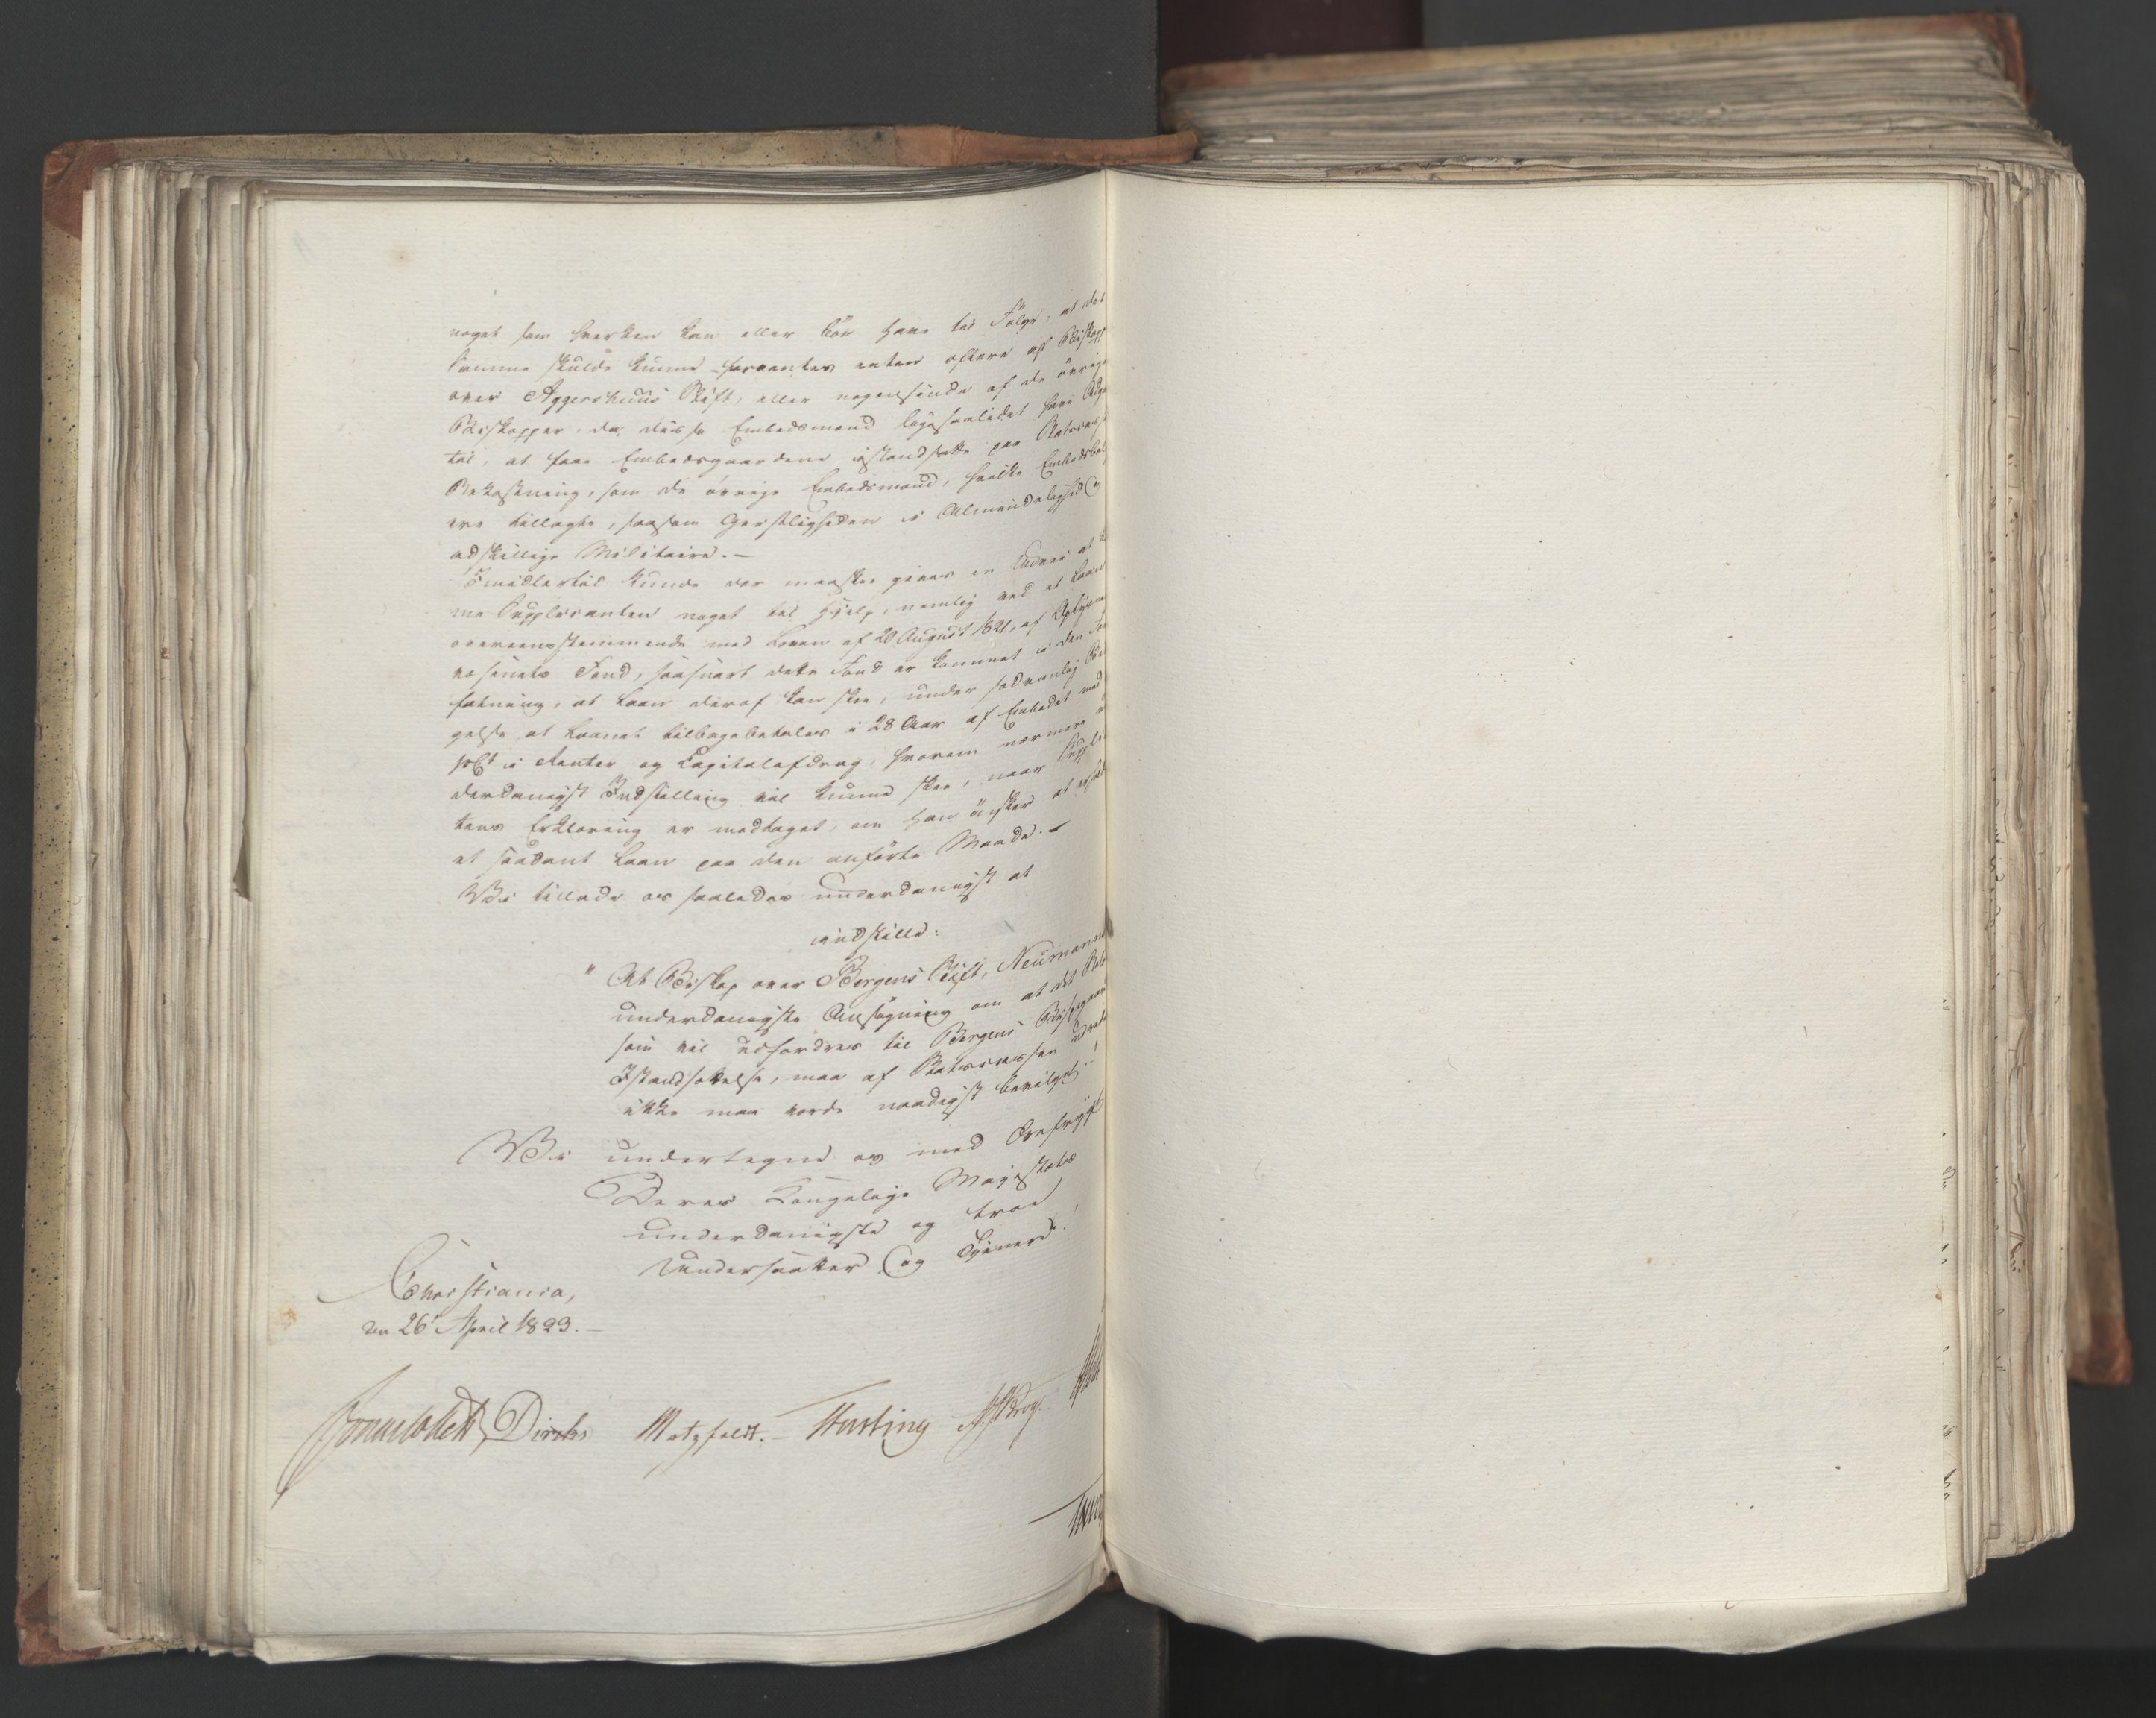 noget som hverken kan eller bör have til Fölge, at det
samme skulde kunne forventes enten oftere af Biskop
over Aggershuus Stift, eller nogensinde af de övrige
Biskopper, da disse Embedsmænd ligesaalidet have
til, at faae Embedsgaardene istandsatte paa Statscas
Bekostning, som de övrige Embedsmænd, hvilke Embedsbol
ere tillagte, saasom Geistligheden i Almindelighed og
adskillige Militaire. —
Imidlertid kunde der maaskee gives en Udvei at
me Supplicanten noget til Hjelp, nemlig ved et Laan
overeensstemmende med Loven af 20 August 1821, af Oplysnings
væsenets Fond, saasnart dette Fond er kommet i den For
fatning, at Laan deraf kan skee, under sædvanlig
gelse at Laanet tilbagebetales i 28 Aar af Embedet med
pCt i Renter og Capitalafdrag, hvorom nærmere
derdanigst Indstilling vil kunne skee, naar Suppli
tens Erklæring er modtaget, om han önsker at erholde
et saadant Laan paa den anförte Maade. —
Vi tillade os saaledes underdanigst at
indstille:
" At Biskop over Bergens Stift, Neumanns
underdanigste Ansögning om at det Belöb
som vil udfordres til Bergens Bispegaards
Istandsættelse, maa af Statscassen udrede
ikke maa vorde naadigst bevilget. "
Vi undertegne os med Ærefrygt
Deres Kongelige Majestæts
underdanigste og troe
Undersaatter og Tjenere.
Christiania,
den 26 April 1823. —
Diriks Motzfeldt. — Hasting